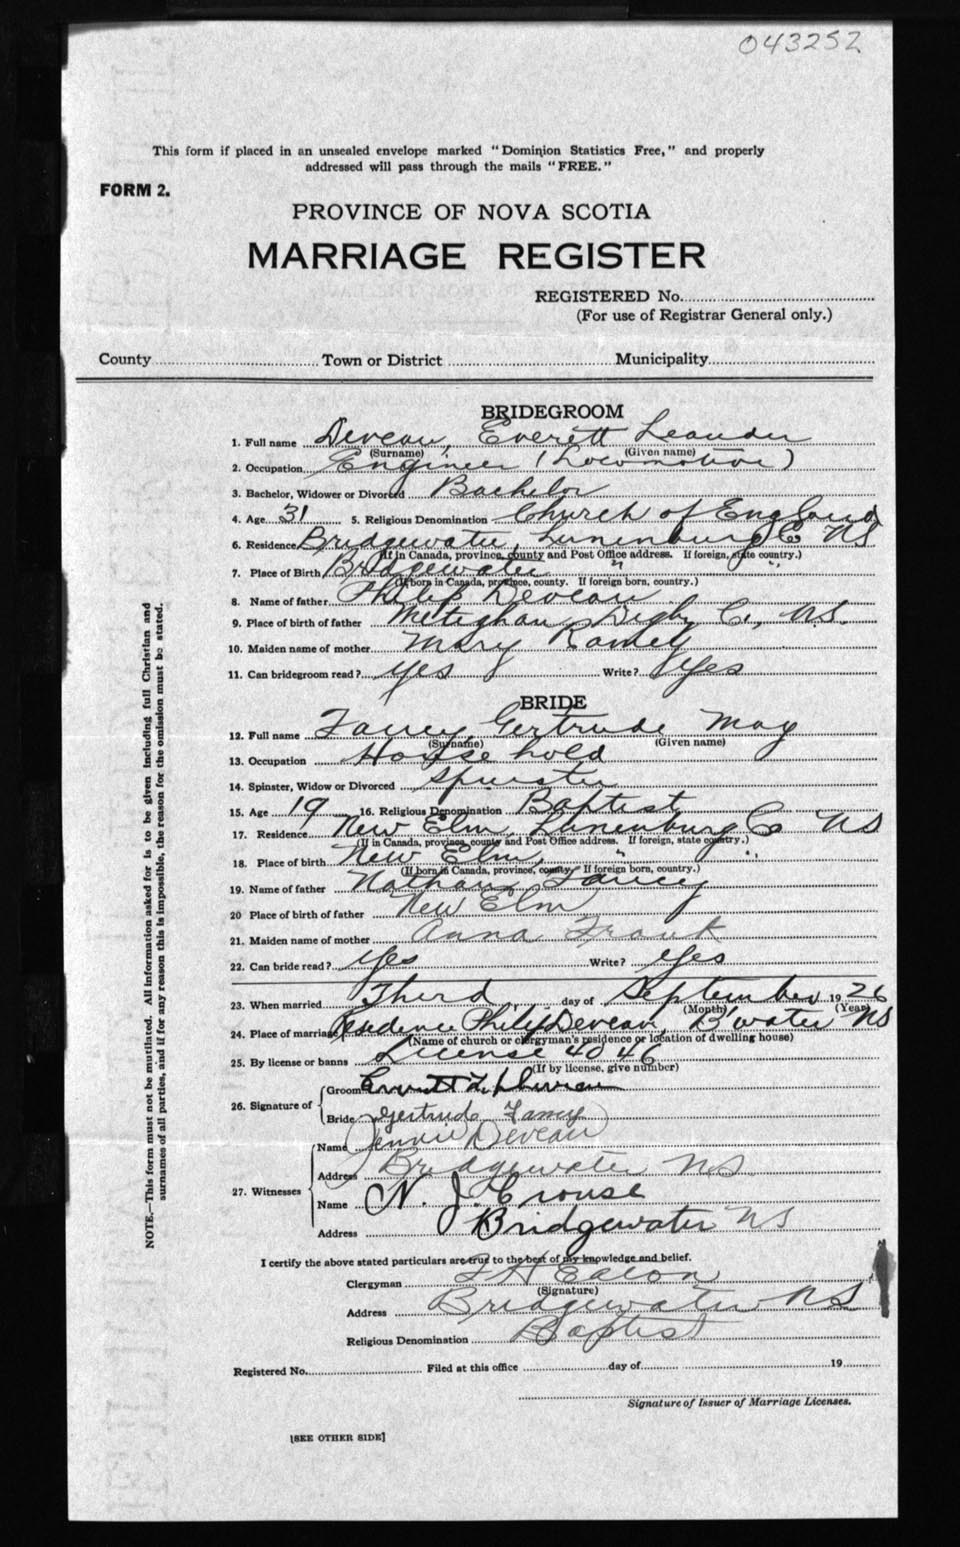 043252
This form if placed in an unsealed envelope marked "Dominion Statistics Free," and properly
addressed will pass through the mails "FREE."
FORM 2.
PROVINCE OF NOVA SCOTIA
MARRIAGE REGISTER
REGISTERED No.
(For use of Registrar General only.)
County Town or District Municipality
BRIDEGROOM
1. Full name Deveau, Everett Leander
(Surname) (Given name)
2. Occupation Engineer (Locomotive)
3. Bachelor, Widower or Divorced Bachelor
4. Age 31 5. Religious Denomination Church of England
6. Residence Bridgewater, Lunenburg Co NS
(If in Canada, province, county and Post Office address. If foreign, state country.)
7. Place of Birth Bridgewater " "
(If born in Canada, province, county. If foreign born, country.)
8. Name of father Philip Deveau
9. Place of birth of father Meteghan, Digby Co., N.S.
10. Maiden name of mother Mary Ramey
11. Can bridegroom read? yes Write? yes
BRIDE
12. Full name Fancy, Gertrude May
(Surname) (Given name)
13. Occupation House hold
14. Spinster, Widow or Divorced Spinster
15. Age 19 16. Religious Denomination Baptist
17. Residence New Elm, Lunenburg Co NS
(If in Canada, province, county and Post Office address. If foreign, state country.)
18. Place of birth New Elm, " "
(If born in Canada, province, county. If foreign born, country.)
19. Name of father Nathan Fancy
20 Place of birth of father New Elm
21. Maiden name of mother Anna Frank
22. Can bride read? yes Write? yes
23. When married Third day of September 1926
(Month) (Year)
24. Place of marriage Residence Philip Deveau, B'water NS
(Name of church or clergyman's residence or location of dwelling house)
25. By license or banns License 4046
(If by license, give number)
26. Signature of Groom Everett L. Deveau
Bride Gertrude Fancy
27. Witnesses Name Jennie Deveau
Address Bridgewater NS
Name N. J. Crouse
Address Bridgewater NS
I certify the above stated particulars are true to the best of my knowledge and belief.
Clergyman
(Signature)
Address Bridgewater NS
Religious Denomination Baptist
Registered No. Filed at this office day of 19
Signature of Issuer of Marriage Licenses.
[SEE OTHER SIDE]
NOTE.—This form must not be mutilated. All information asked for is to be given including full Christian and
surnames of all parties, and if for any reason this is impossible, the reason for the omission must be stated.